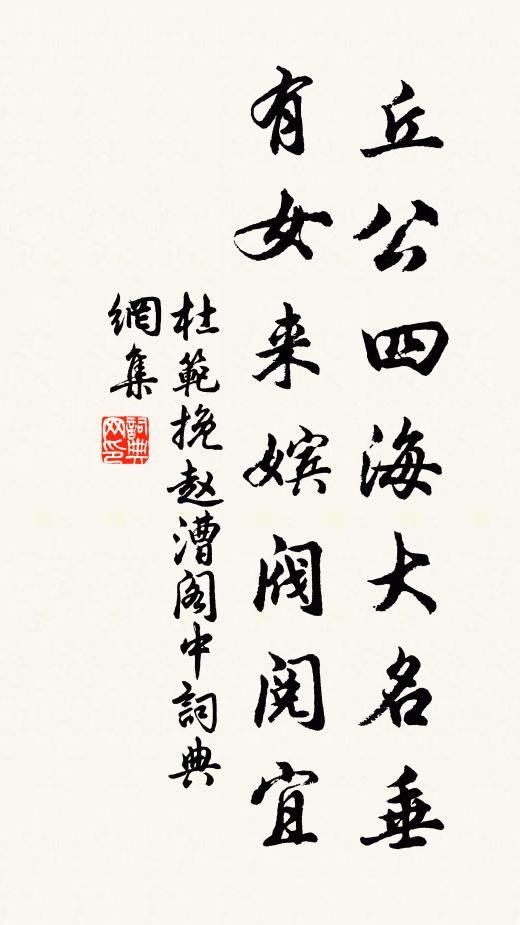 丘公四海大名垂
有女来嫔阀阅宜
杜範挽赵漕阁中詞典
網集
詞典
网印